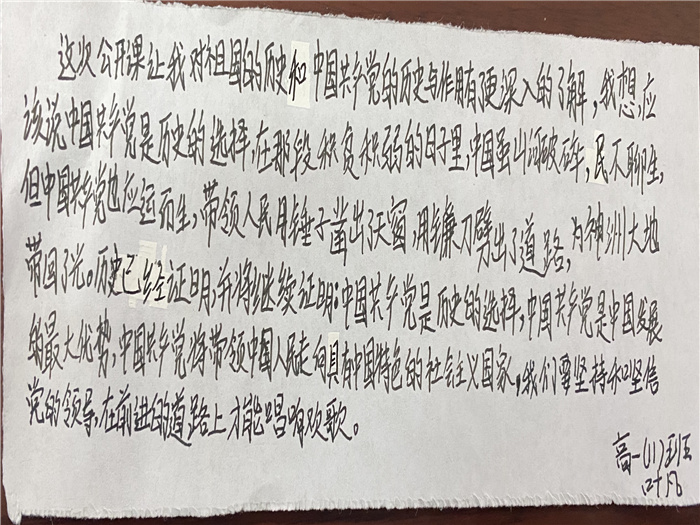 这次公开课让我对祖国的历史和中国共产党的历史与作用有了更深入的了解，我想，应
该说中国共产党是历史的选择，在那段积贫积弱的日子里，中国虽山河破碎，民不聊生，
但中国共产党也应运而生，带领人民用锤子凿出了天窗，用镰刀劈出了道路，为神州大地
带回了光。历史已经证明，并将继续证明：中国共产党是历史的选择，中国共产党是中国发展
的最大优势，中国共产党将带领中国人民走向具有中国特色的社会主义国家，我们要坚持和坚信
党的领导，在前进的道路上才能唱响欢歌。
高一(11)班
叶凡